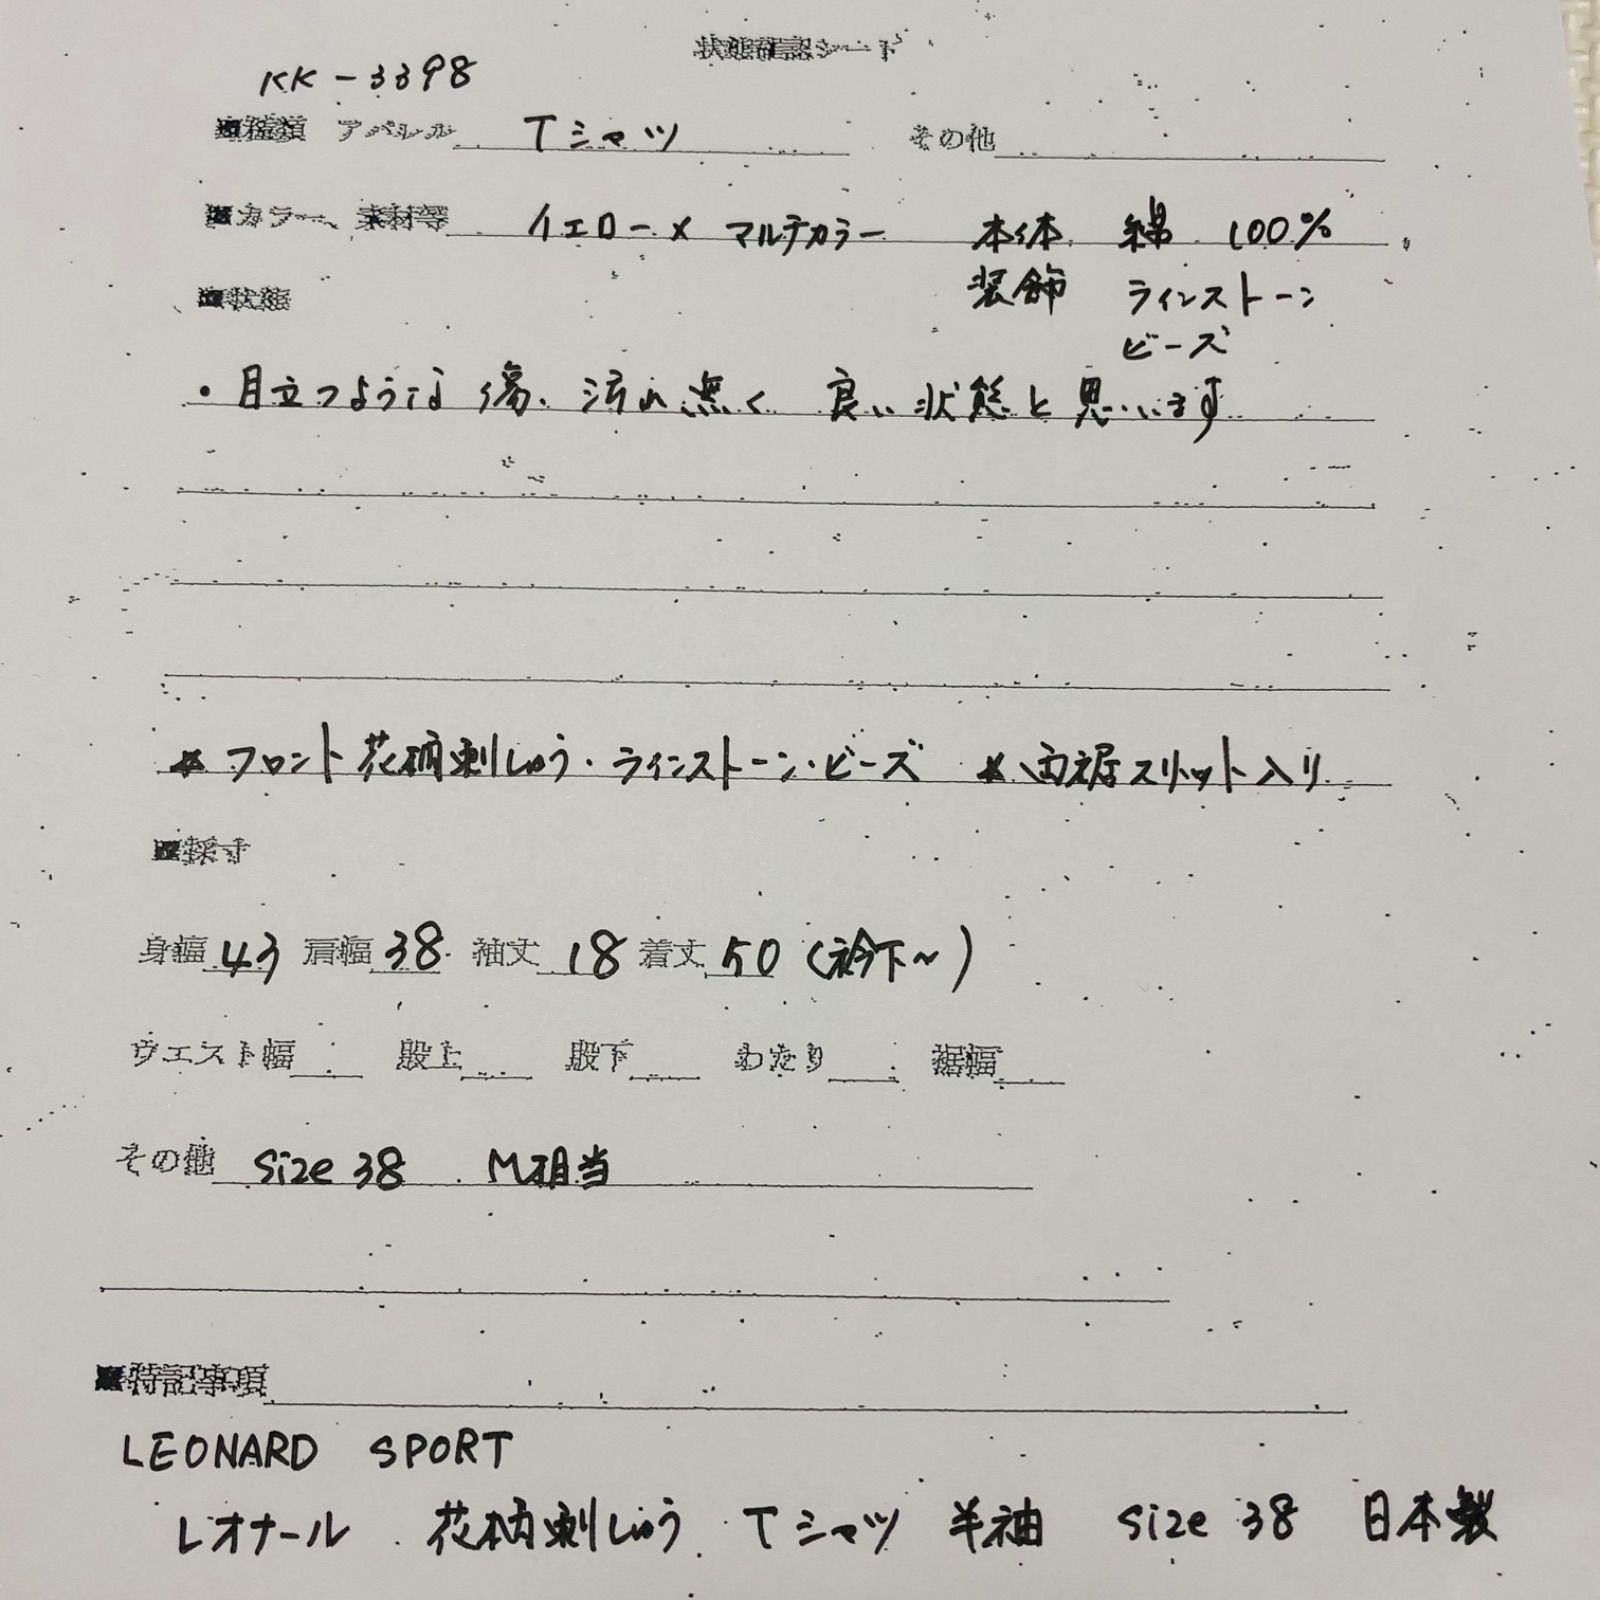 状態確認シート
KK-3398
■種類 アパレル Tシャツ その他
■カラー、素材等 イエロー× マルチカラー 本体 綿 100%
装飾 ラインストーン
ビーズ
■状態
・目立つような傷、汚れ無く 良い状態と思います
* フロント花柄刺しゅう・ラインストーン・ビーズ * 両裾スリット入り
■採寸
身幅 43 肩幅 38 袖丈 18 着丈 50 (衿下~)
ウエスト幅 股上 股下 わたり 裾幅
その他 size 38 M相当
■特記事項
LEONARD SPORT
レオナール 花柄刺しゅう Tシャツ 半袖 size 38 日本製